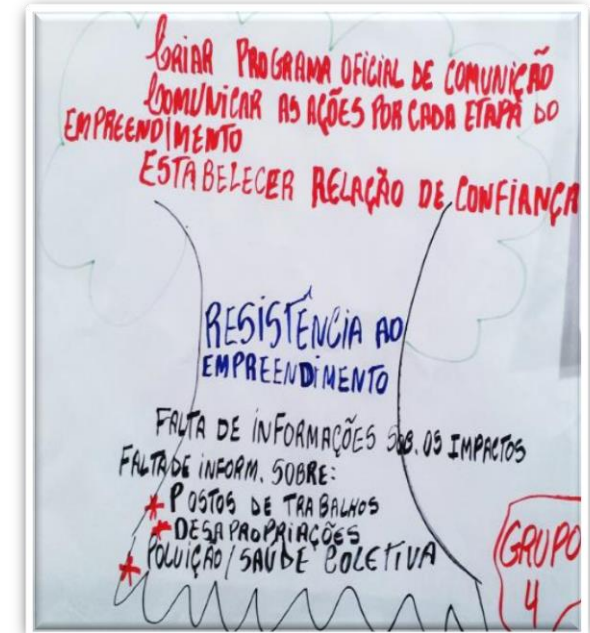 CRIAR PROGRAMA OFICIAL DE COMUNIÇÃO
COMUNICAR AS AÇÕES POR CADA ETAPA DO
EMPREENDIMENTO
ESTABELECER RELAÇÃO DE CONFIANÇA
RESISTÊNCIA AO
EMPREENDIMENTO
FALTA DE INFORMAÇÕES SOB. OS IMPACTOS
FALTA DE INFORM. SOBRE:
* POSTOS DE TRABALHOS
* DESAPROPRIAÇÕES
* POLUIÇÃO / SAÚDE COLETIVA
GRUPO
4